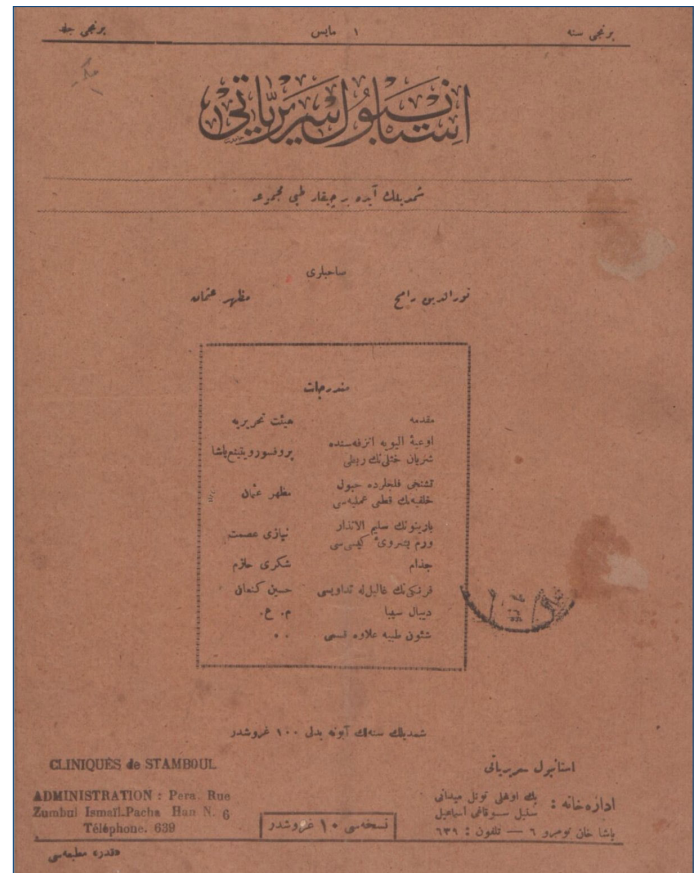 برنجی سنه ١ مایس برنجی جلد
استانبول سریریاتی
شمدیلك آیده بر چیقار طبی مجموعه
صاحبلری
نورالدین رامح مظهر عثمان
مندرجات
مقدمه هیئت تحریریه
اوعیهٔ الیویه انزفه‌سنده
شریان ختلی‌نك ربطی پروفسور ویتینغ پاشا
تشنجی فلجلرده حبول
خلفیه‌نك قطعی عملیه‌سی مظهر عثمان
باریتونك سلیم الانذار
ورم بصروی کیسی‌سی نیازی عصمت
جذام شکری حازم
فرنکی‌نك غالیل‌له تداویسی حسین کنعان
دیبال سیبا م. ع.
شئون طبیه علاوه قسمی
شمدیلك سنه‌لك آبونه بدلی ١٠٠ غروشدر
CLINIQUES de STAMBOUL
ADMINISTRATION : Pera. Rue
Zumbul Ismaïl-Pacha Han N. 6
Téléphone. 639
استانبول سریریاتی
اداره‌خانه : بك اوغلی تونل میدانی
سنبل سوقاغی اسماعیل
پاشا خان نومرو ٦ — تلفون : ٦٣٩
نسخه‌سی ١٠ غروشدر
«قدر» مطبعه‌سی